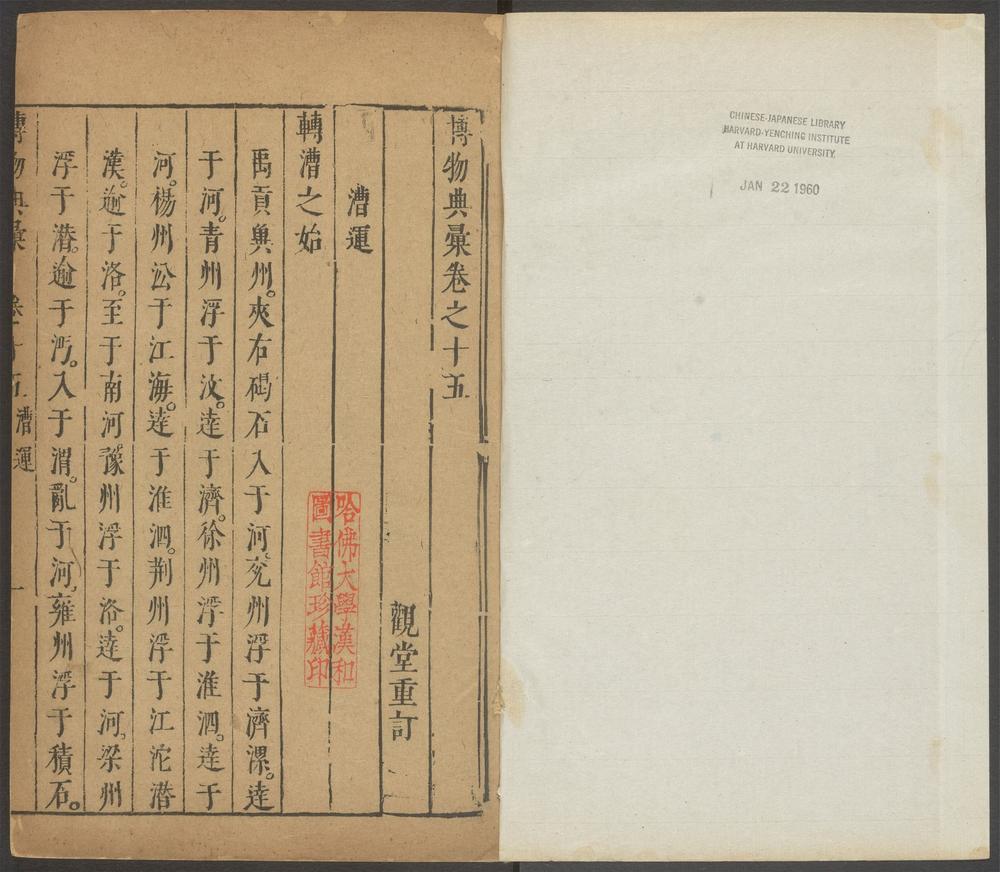 CHINESE-JAPANESE LIBRARY
HARVARD-YENCHING INSTITUTE
AT HARVARD UNIVERSITY
JAN 22 1960
博物典彙卷之十五
觀堂重訂
漕運
轉漕之始
禹貢兾州。夾右碣石入于河。兖州浮于濟漯。達
于河。青州浮于汶。達于濟。徐州浮于淮泗。達于
河。楊州㳂于江海。達于淮泗。荆州浮于江沱潜
漢。逾于洛。至于南河。豫州浮于洛。達于河。梁州
浮于潜。逾于沔。入于渭。亂于河。雍州浮于積石。
博物典彙 卷十五 漕運 一
哈佛大學漢和
圖書館珍藏印